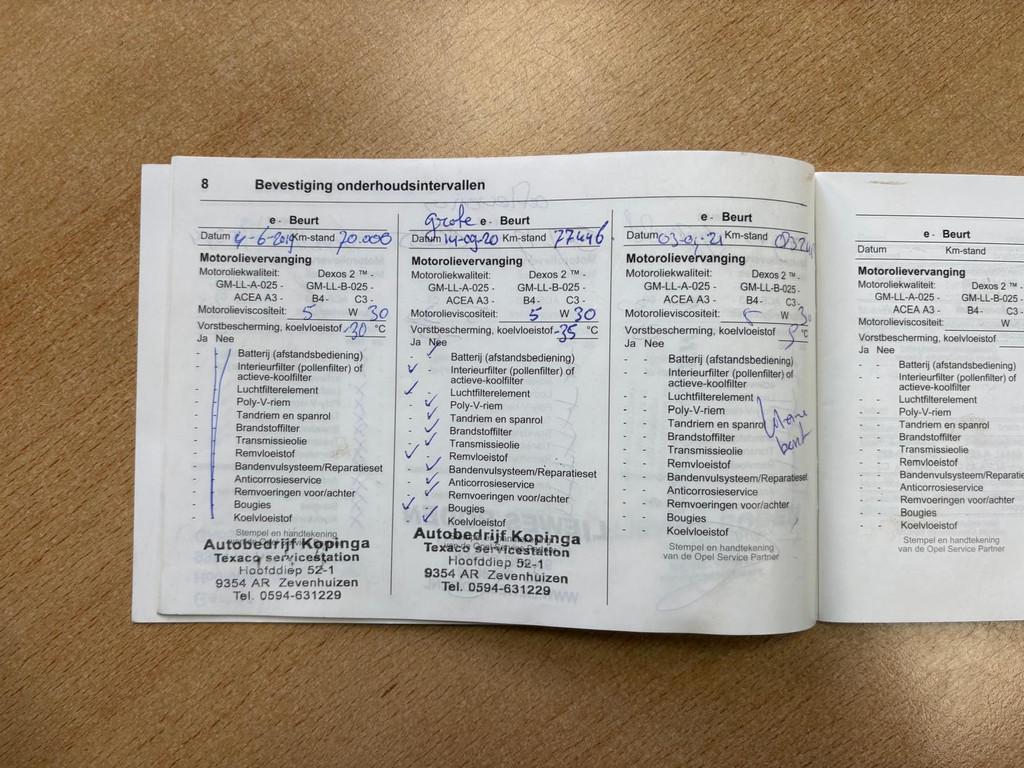 8 Bevestiging onderhoudsintervallen
e - Beurt
Datum 4-6-2019 Km-stand 70.000
Motorolievervanging
Motoroliekwaliteit: Dexos 2 ™ -
GM-LL-A-025 - GM-LL-B-025 -
ACEA A3 - B4 - C3 -
Motorolieviscositeit: 5 W 30
Vorstbescherming, koelvloeistof -30 °C
Ja Nee
- - Batterij (afstandsbediening)
- - Interieurfilter (pollenfilter) of
actieve-koolfilter
- - Luchtfilterelement
- - Poly-V-riem
- - Tandriem en spanrol
- - Brandstoffilter
- - Transmissieolie
- - Remvloeistof
- - Bandenvulsysteem/Reparatieset
- - Anticorrosieservice
- - Remvoeringen voor/achter
- - Bougies
- - Koelvloeistof
Stempel en handtekening
Autobedrijf Kopinga
Texaco servicestation
Hoofddiep 52-1
9354 AR Zevenhuizen
Tel. 0594-631229
grote e - Beurt
Datum 14-09-20 Km-stand 77446
Motorolievervanging
Motoroliekwaliteit: Dexos 2 ™ -
GM-LL-A-025 - GM-LL-B-025 -
ACEA A3 - B4 - C3 -
Motorolieviscositeit: 5 W 30
Vorstbescherming, koelvloeistof -35 °C
Ja Nee
- ✓ Batterij (afstandsbediening)
✓ - Interieurfilter (pollenfilter) of
actieve-koolfilter
✓ - Luchtfilterelement
- ✓ Poly-V-riem
- ✓ Tandriem en spanrol
- ✓ Brandstoffilter
- ✓ Transmissieolie
✓ - Remvloeistof
- ✓ Bandenvulsysteem/Reparatieset
- ✓ Anticorrosieservice
- ✓ Remvoeringen voor/achter
✓ - Bougies
- ✓ Koelvloeistof
Autobedrijf Kopinga
Texaco servicestation
Hoofddiep 52-1
9354 AR Zevenhuizen
Tel. 0594-631229
e - Beurt
Datum Km-stand
Motorolievervanging
Motoroliekwaliteit: Dexos 2 ™ -
GM-LL-A-025 - GM-LL-B-025 -
ACEA A3 - B4 - C3 -
Motorolieviscositeit: 5 W 30
Vorstbescherming, koelvloeistof °C
Ja Nee
- - Batterij (afstandsbediening)
- - Interieurfilter (pollenfilter) of
actieve-koolfilter
- - Luchtfilterelement
- - Poly-V-riem
- - Tandriem en spanrol
- - Brandstoffilter
- - Transmissieolie
- - Remvloeistof
- - Bandenvulsysteem/Reparatieset
- - Anticorrosieservice
- - Remvoeringen voor/achter
- - Bougies
- - Koelvloeistof
Kleine
beurt
Stempel en handtekening
van de Opel Service Partner
e - Beurt
Datum Km-stand
Motorolievervanging
Motoroliekwaliteit: Dexos 2 ™ -
GM-LL-A-025 - GM-LL-B-025 -
ACEA A3 - B4 - C3 -
Motorolieviscositeit: W
Vorstbescherming, koelvloeistof
Ja Nee
- - Batterij (afstandsbediening)
- - Interieurfilter (pollenfilter) of
actieve-koolfilter
- - Luchtfilterelement
- - Poly-V-riem
- - Tandriem en spanrol
- - Brandstoffilter
- - Transmissieolie
- - Remvloeistof
- - Bandenvulsysteem/Reparatie
- - Anticorrosieservice
- - Remvoeringen voor/achter
- - Bougies
- - Koelvloeistof
Stempel en handtekening
van de Opel Service Partner